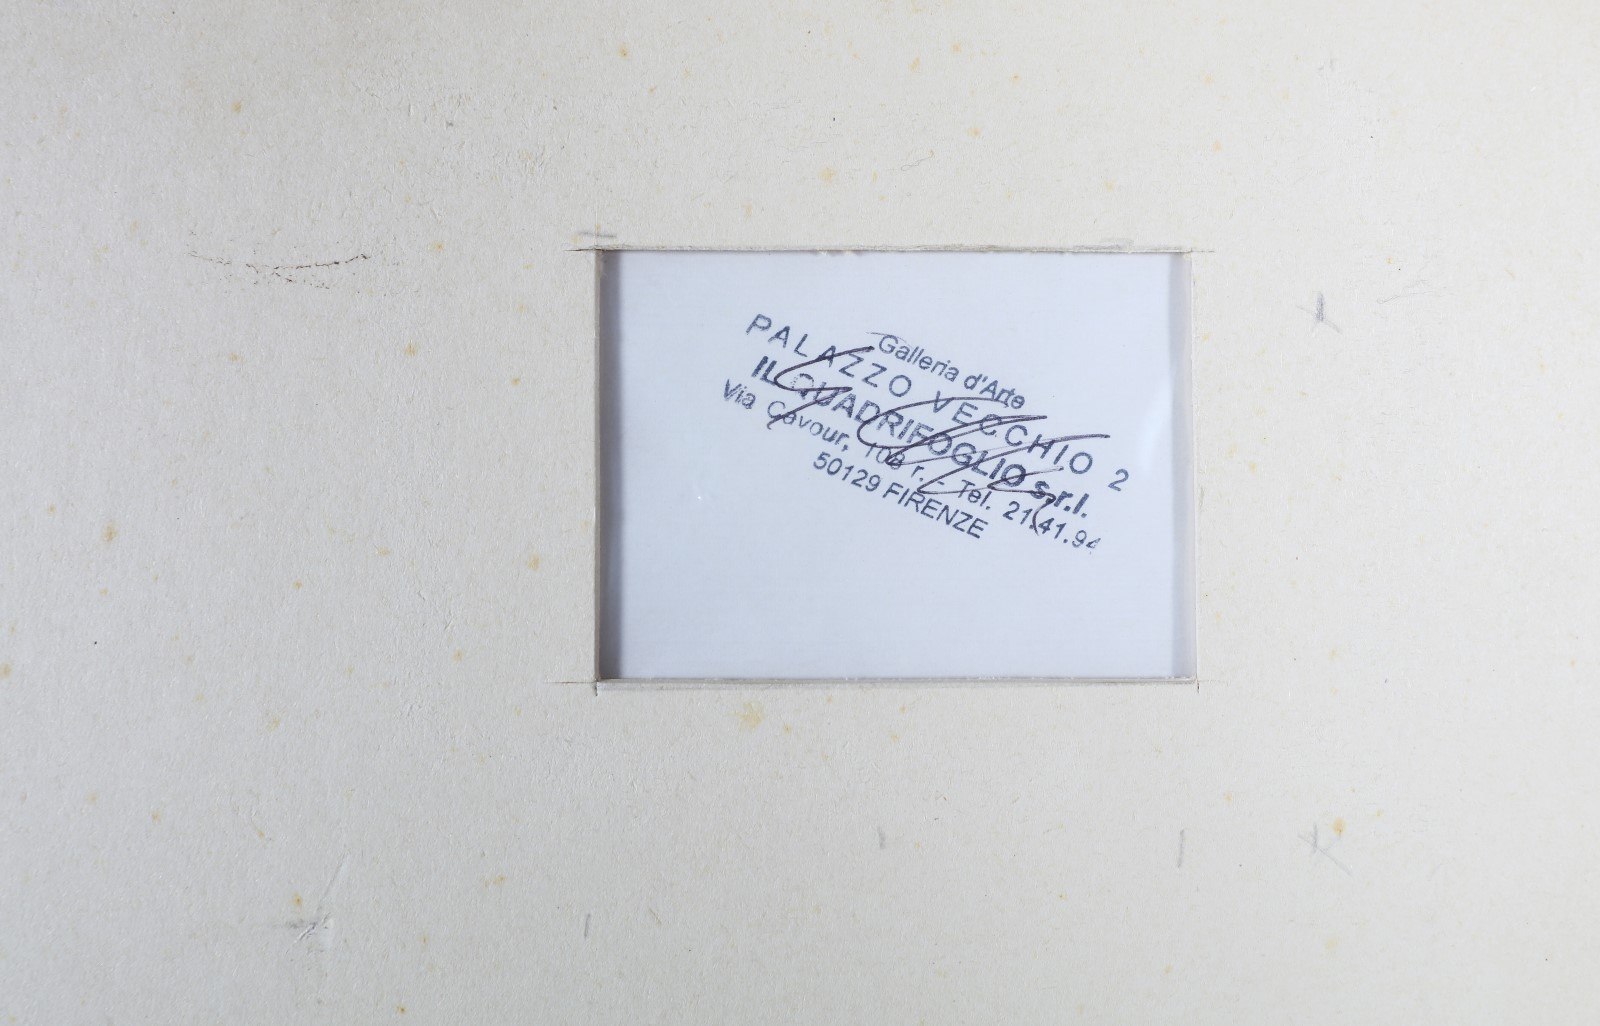 Galleria d'Arte
PALAZZO VECCHIO 2
IL QUADRIFOGLIO s.r.l.
Via Cavour, r. - Tel. 21.41.94
50129 FIRENZE